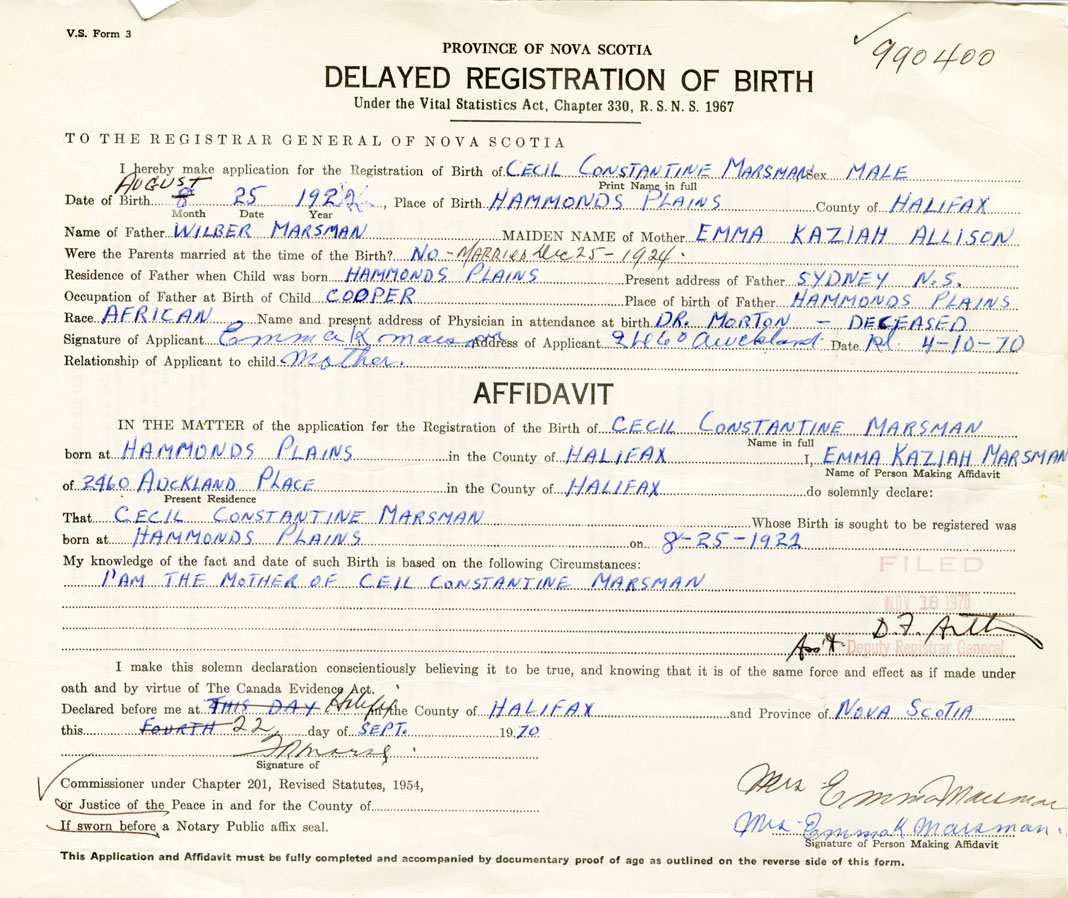 V.S. Form 3
990400
PROVINCE OF NOVA SCOTIA
DELAYED REGISTRATION OF BIRTH
Under the Vital Statistics Act, Chapter 330, R. S. N. S. 1967
TO THE REGISTRAR GENERAL OF NOVA SCOTIA
I hereby make application for the Registration of Birth of CECIL CONSTANTINE MARSMAN Sex MALE
Print Name in full
AUGUST
Date of Birth 8 25 1922, Place of Birth HAMMONDS PLAINS County of HALIFAX
Month Date Year
Name of Father WILBER MARSMAN MAIDEN NAME of Mother EMMA KAZIAH ALLISON
Were the Parents married at the time of the Birth? NO - MARRIED Dec 25 - 1924.
Residence of Father when Child was born HAMMONDS PLAINS Present address of Father SYDNEY N.S.
Occupation of Father at Birth of Child COOPER Place of birth of Father HAMMONDS PLAINS
Race AFRICAN Name and present address of Physician in attendance at birth DR. MORTON - DECEASED
Signature of Applicant Emma K Address of Applicant Auckland Date 4-10-70
Relationship of Applicant to child Mother.
AFFIDAVIT
IN THE MATTER of the application for the Registration of the Birth of CECIL CONSTANTINE MARSMAN
Name in full
born at HAMMONDS PLAINS in the County of HALIFAX I, EMMA KAZIAH MARSMAN
Name of Person Making Affidavit
of 2460 AUCKLAND PLACE in the County of HALIFAX do solemnly declare:
Present Residence
That CECIL CONSTANTINE MARSMAN Whose Birth is sought to be registered was
born at HAMMONDS PLAINS on 8-25-1922
My knowledge of the fact and date of such Birth is based on the following Circumstances:
I'AM THE MOTHER OF CEIL CONSTANTINE MARSMAN
FILED
NOV 18 1970
D.F.
Ass't Deputy Registrar General
I make this solemn declaration conscientiously believing it to be true, and knowing that it is of the same force and effect as if made under
oath and by virtue of The Canada Evidence Act.
Declared before me at THIS DAY Halifax in the County of HALIFAX and Province of NOVA SCOTIA
this FOURTH 22 day of SEPT. 1970
Signature of
Commissioner under Chapter 201, Revised Statutes, 1954,
or Justice of the Peace in and for the County of
If sworn before a Notary Public affix seal.
Mrs Emma Marsman
Mrs. Emma K Marsman.
Signature of Person Making Affidavit
This Application and Affidavit must be fully completed and accompanied by documentary proof of age as outlined on the reverse side of this form.